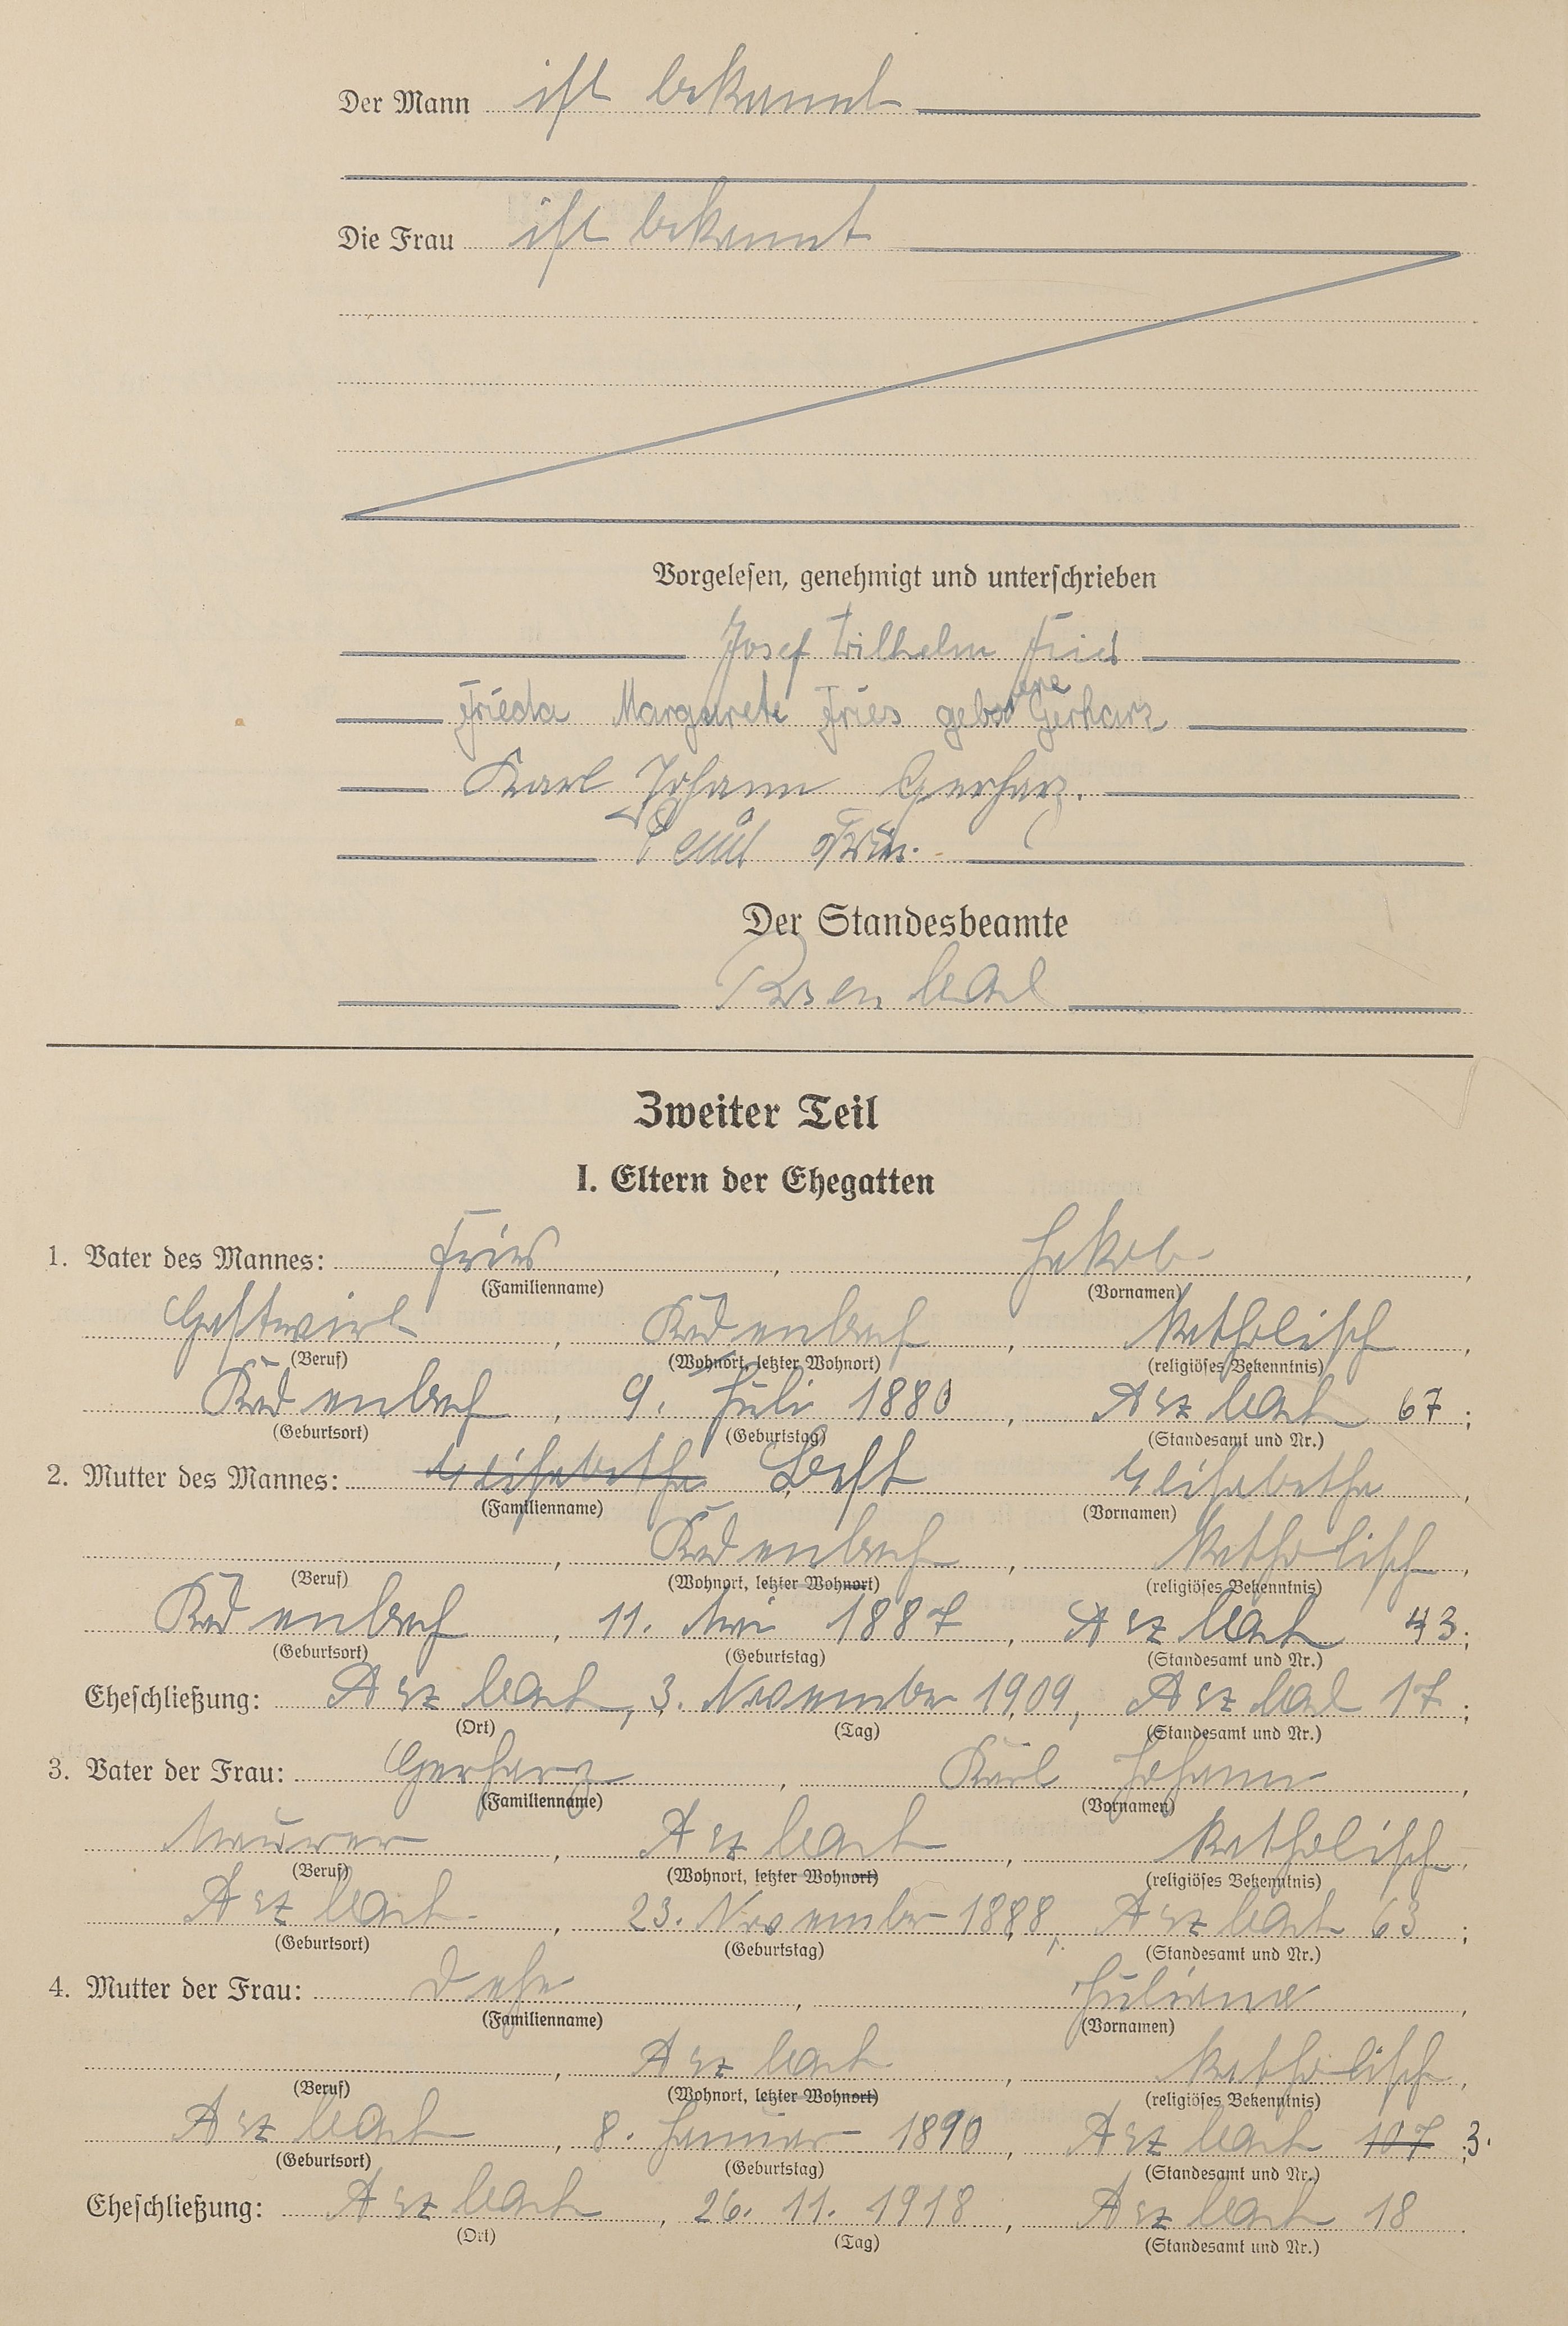 Der Mann ist bekannt
Die Frau ist bekannt
Vorgelesen, genehmigt und unterschrieben
Josef Wilhelm Fries
Frieda Margarete Fries geborene Gerharz
Karl Johann Gerharz.
Fries.
Der Standesbeamte
Zweiter Teil
I. Eltern der Ehegatten
1. Vater des Mannes: Fries, Jakob,
(Familienname) (Vornamen)
Gastwirt, Kadenbach, katholisch,
(Beruf) (Wohnort, letzter Wohnort) (religiöses Bekenntnis)
Kadenbach, 9. Juli 1880, Arzbach 67;
(Geburtsort) (Geburtstag) (Standesamt und Nr.)
2. Mutter des Mannes: Elisabetha Elisabetha,
(Familienname) (Vornamen)
, Kadenbach, katholisch,
(Beruf) (Wohnort, letzter Wohnort) (religiöses Bekenntnis)
Kadenbach, 11. Mai 1887, Arzbach 43;
(Geburtsort) (Geburtstag) (Standesamt und Nr.)
Eheschließung: Arzbach, 3. November 1909, Arzbach 17;
(Ort) (Tag) (Standesamt und Nr.)
3. Vater der Frau: Gerharz, Karl Johann,
(Familienname) (Vornamen)
Maurer, Arzbach, katholisch,
(Beruf) (Wohnort, letzter Wohnort) (religiöses Bekenntnis)
Arzbach, 23. November 1888, Arzbach 63;
(Geburtsort) (Geburtstag) (Standesamt und Nr.)
4. Mutter der Frau: Dehe, Juliana,
(Familienname) (Vornamen)
, Arzbach, katholisch,
(Beruf) (Wohnort, letzter Wohnort) (religiöses Bekenntnis)
Arzbach, 8. Januar 1890, Arzbach 107 3.
(Geburtsort) (Geburtstag) (Standesamt und Nr.)
Eheschließung: Arzbach, 26. 11. 1918, Arzbach 18.
(Ort) (Tag) (Standesamt und Nr.)